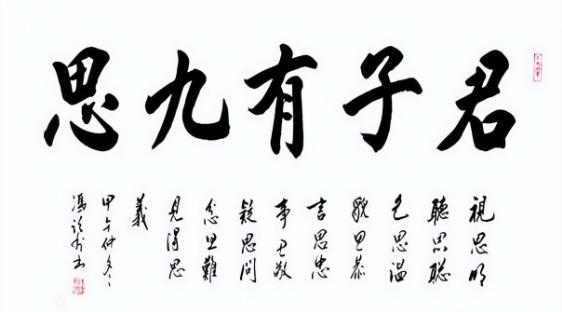 君子有九思
視思明
聽思聡
色思温
貌思恭
言思忠
事思敬
疑思問
忿思難
見得思
義
甲午仲冬
馮